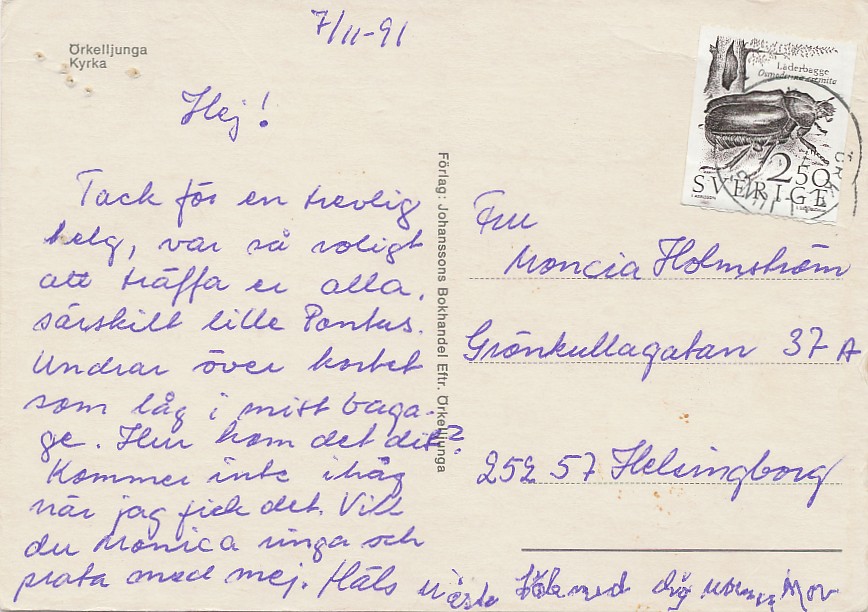 Örkelljunga
Kyrka
7/11-91
Hej!
Tack för en trevlig
helg, var så roligt
att träffa er alla,
särskilt lille Pontus.
Undrar över kortet
som låg i mitt baga-
ge. Hur kom det dit?
Kommer inte ihåg
när jag fick det. Vill
du Monica ringa och
prata med mej. Häls
Mor
Förlag: Johanssons Bokhandel Eftr. Örkelljunga
Läderbagge
Osmoderma eremita
2.50
SVERIGE
Fru
Moncia Holmström
Grönkullagatan 37 A
252 57 Helsingborg